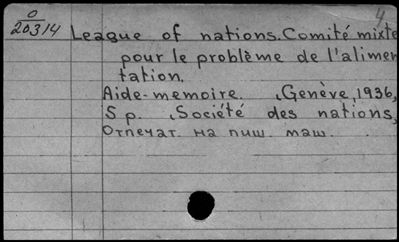 4
0
20314
League of nations. Comité mixte
pour le problème de l'alimen
tation.
Aide-memoire. Genève, 1936,
5 p. Société des nations,
Отпечат. на пиш. маш.